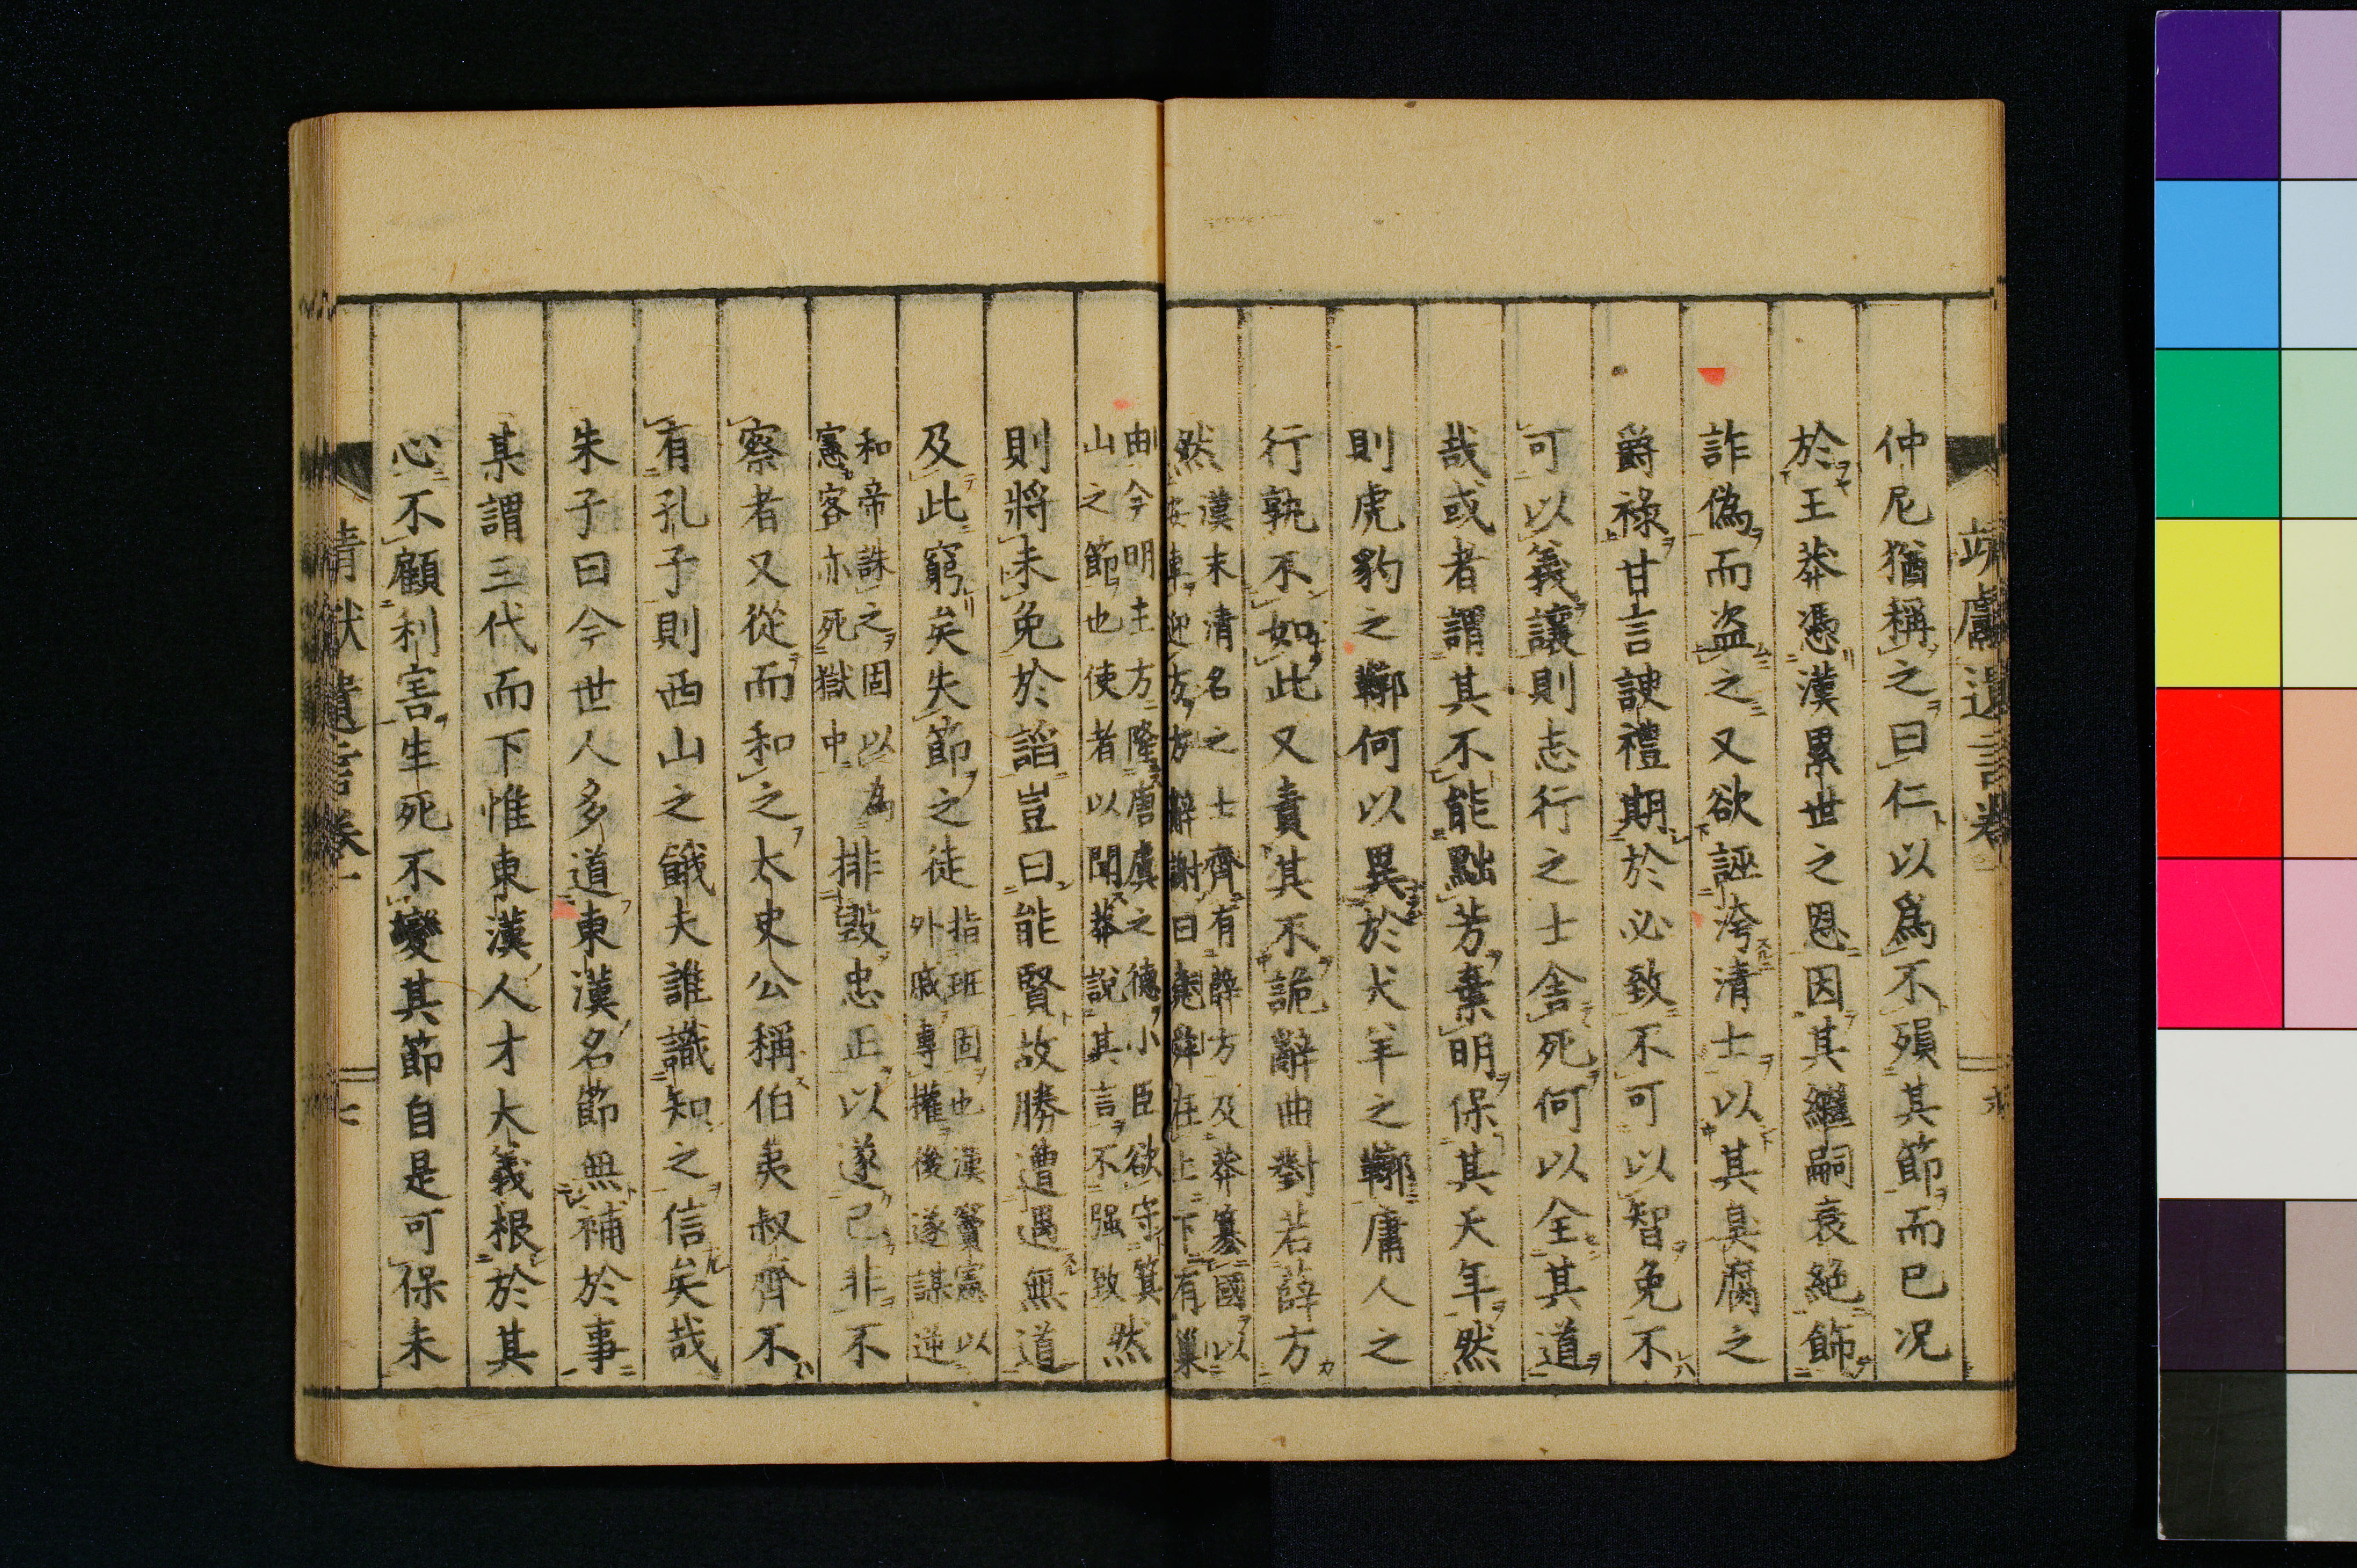 仲尼猶稱之曰仁以爲不殞其節而已况
於王莽憑漢累世之恩因其繼嗣衰絶飾
詐偽而盗之又欲誣洿清士以其臭腐之
爵祿甘言諛禮期於必致不可以智免不
可以義讓則志行之士舎死何以全其道
哉或者謂其不能黜芳棄明保其天年然
則虎豹之鞹何以異於犬羊之鞹庸人之
行孰不如此又責其不詭辭曲對若薛方
然 漢末清名之士齊有薛方及莽簒國以
安車迎方方辭謝曰堯舜在上下有巢
由今明主方隆唐虞之德小臣欲守箕
山之節也使者以聞莽説其言不强致 然
則將未免於諂豈曰能賢故勝遭遇無道
及此窮矣失節之徒 指班固也漢竇憲以
外戚專權後遂謀逆
和帝誅之固以為
憲客亦死獄中 排毀忠正以遂己非不
察者又從而和之太史公稱伯夷叔齊不
有孔子則西山之餓夫誰識知之信矣哉
朱子曰今世人多道東漢名節無補於事
某謂三代而下惟東漢人才大義根於其
心不顧利害生死不變其節自是可保未
靖獻遺言卷一